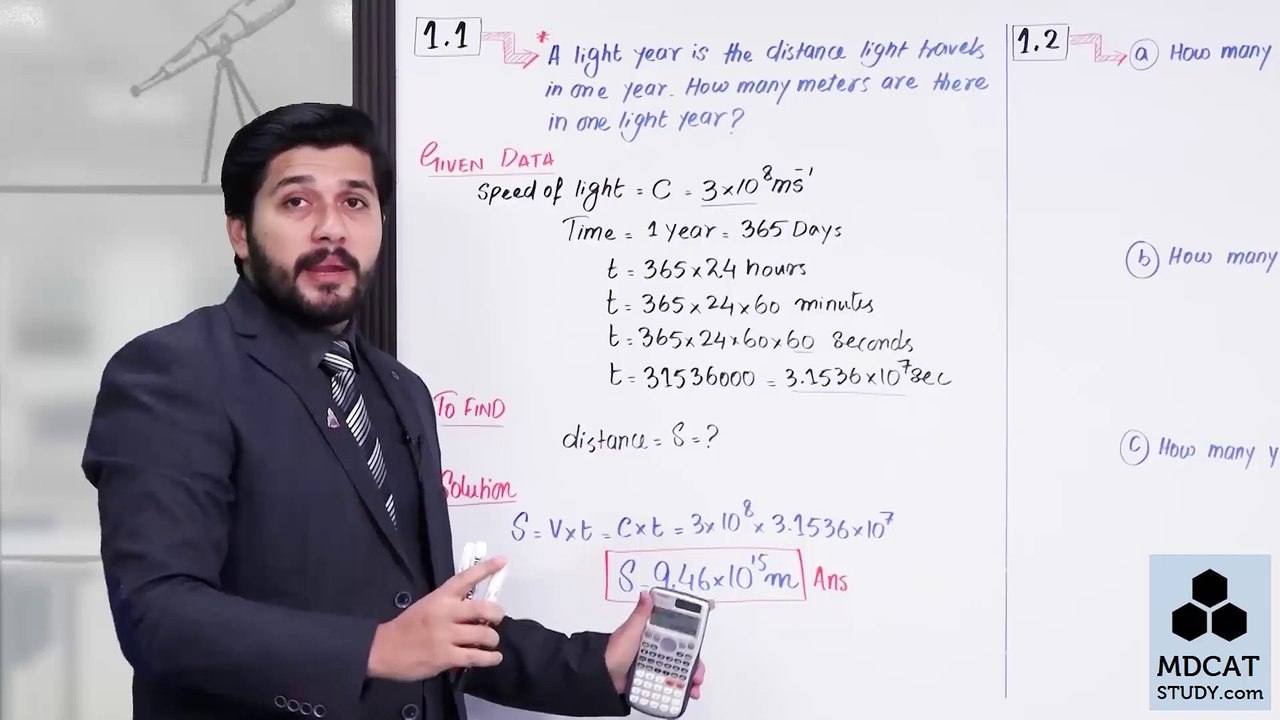 1.1
* A light year is the distance light travels
in one year. How many meters are there
in one light year?
GIVEN DATA
Speed of light = C = 3×10⁸ms⁻¹
Time = 1 year = 365 Days
t = 365×24 hours
t = 365×24×60 minutes
t = 365×24×60×60 Seconds
t = 31536000 = 3.1536×10⁷sec
TO FIND
distance = S = ?
Solution
S = V×t = C×t = 3×10⁸ × 3.1536×10⁷
S = 9.46×10¹⁵m Ans
1.2
a How many
b How many
c How many y
MDCAT
STUDY.com